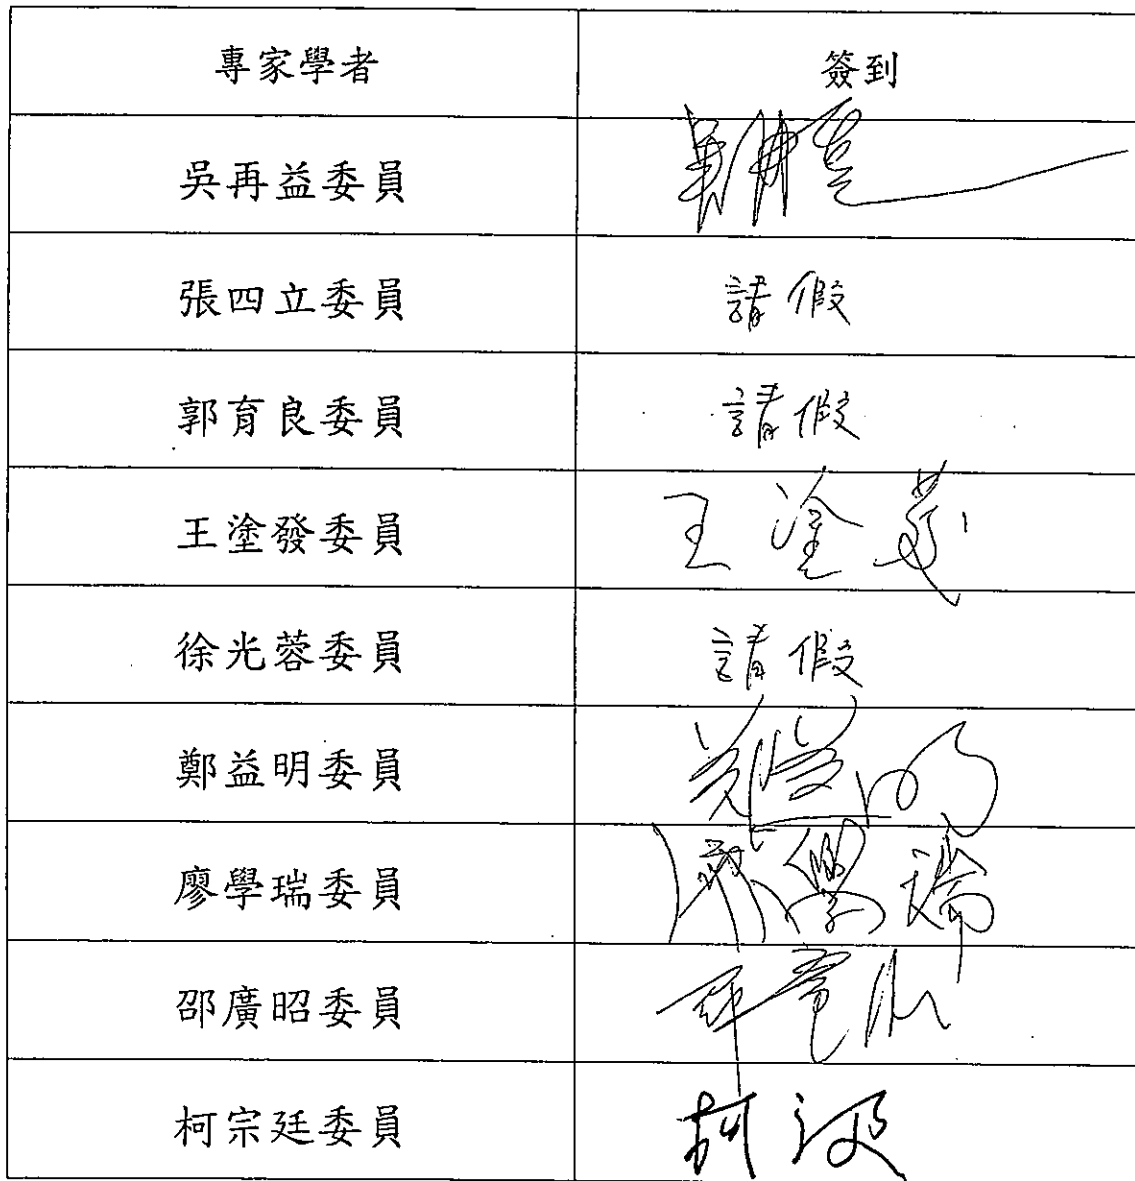 專家學者 簽到
吳再益委員 吳再益
張四立委員 請假
郭育良委員 請假
王塗發委員 王塗發
徐光蓉委員 請假
鄭益明委員 鄭益明
廖學瑞委員 廖學瑞
邵廣昭委員
柯宗廷委員 柯